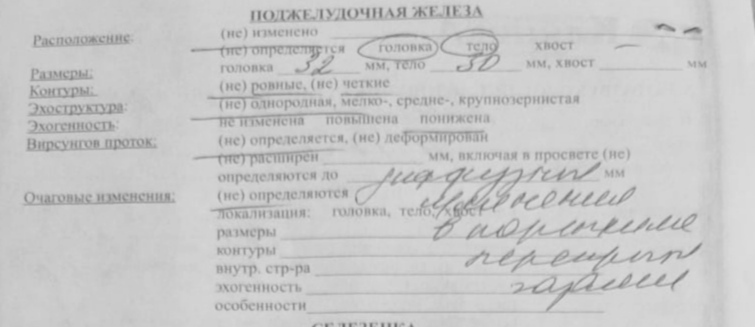 ПОДЖЕЛУДОЧНАЯ ЖЕЛЕЗА
Расположение: (не) изменено
(не) определяется головка тело хвост —
Размеры: головка 32 мм, тело 30 мм, хвост мм
Контуры: (не) ровные, (не) четкие
Эхоструктура: (не) однородная, мелко-, средне-, крупнозернистая
Эхогенность: не изменена повышена понижена
Вирсунгов проток: (не) определяется, (не) деформирован
(не) расширен мм, включая в просвете (не)
определяются до мм
диффузные
Очаговые изменения: (не) определяются
изменения
локализация: головка, тело, хвост
размеры
в
контуры
внутр. стр-ра
эхогенность
особенности
СЕЛЕЗЕНКА